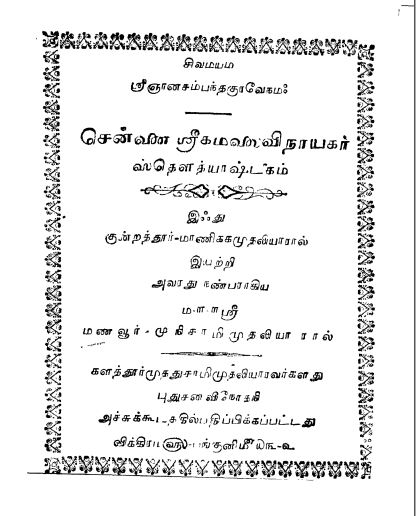 சிவமயம
ஸ்ரீஞானசம்பந்தகுரவேநமஃ
சென்னை ஸ்ரீகமலவிநாயகர்
ஸ்தௌத்யாஷ்டகம்
இஃது
குன்றத்தூர்-மாணிக்கமுதலியாரால்
இயற்றி
அவரது நண்பராகிய
ம-ள-ள-ஸ்ரீ
மணவூர் - முநிசாமிமுதலியாரால்
களத்தூர்முத்துசாமிமுதலியாரவர்களது
புதுசனவிநோதநி
அச்சுக்கூடத்திற்பதிப்பிக்கப்பட்டது
விக்கிர பங்குனி